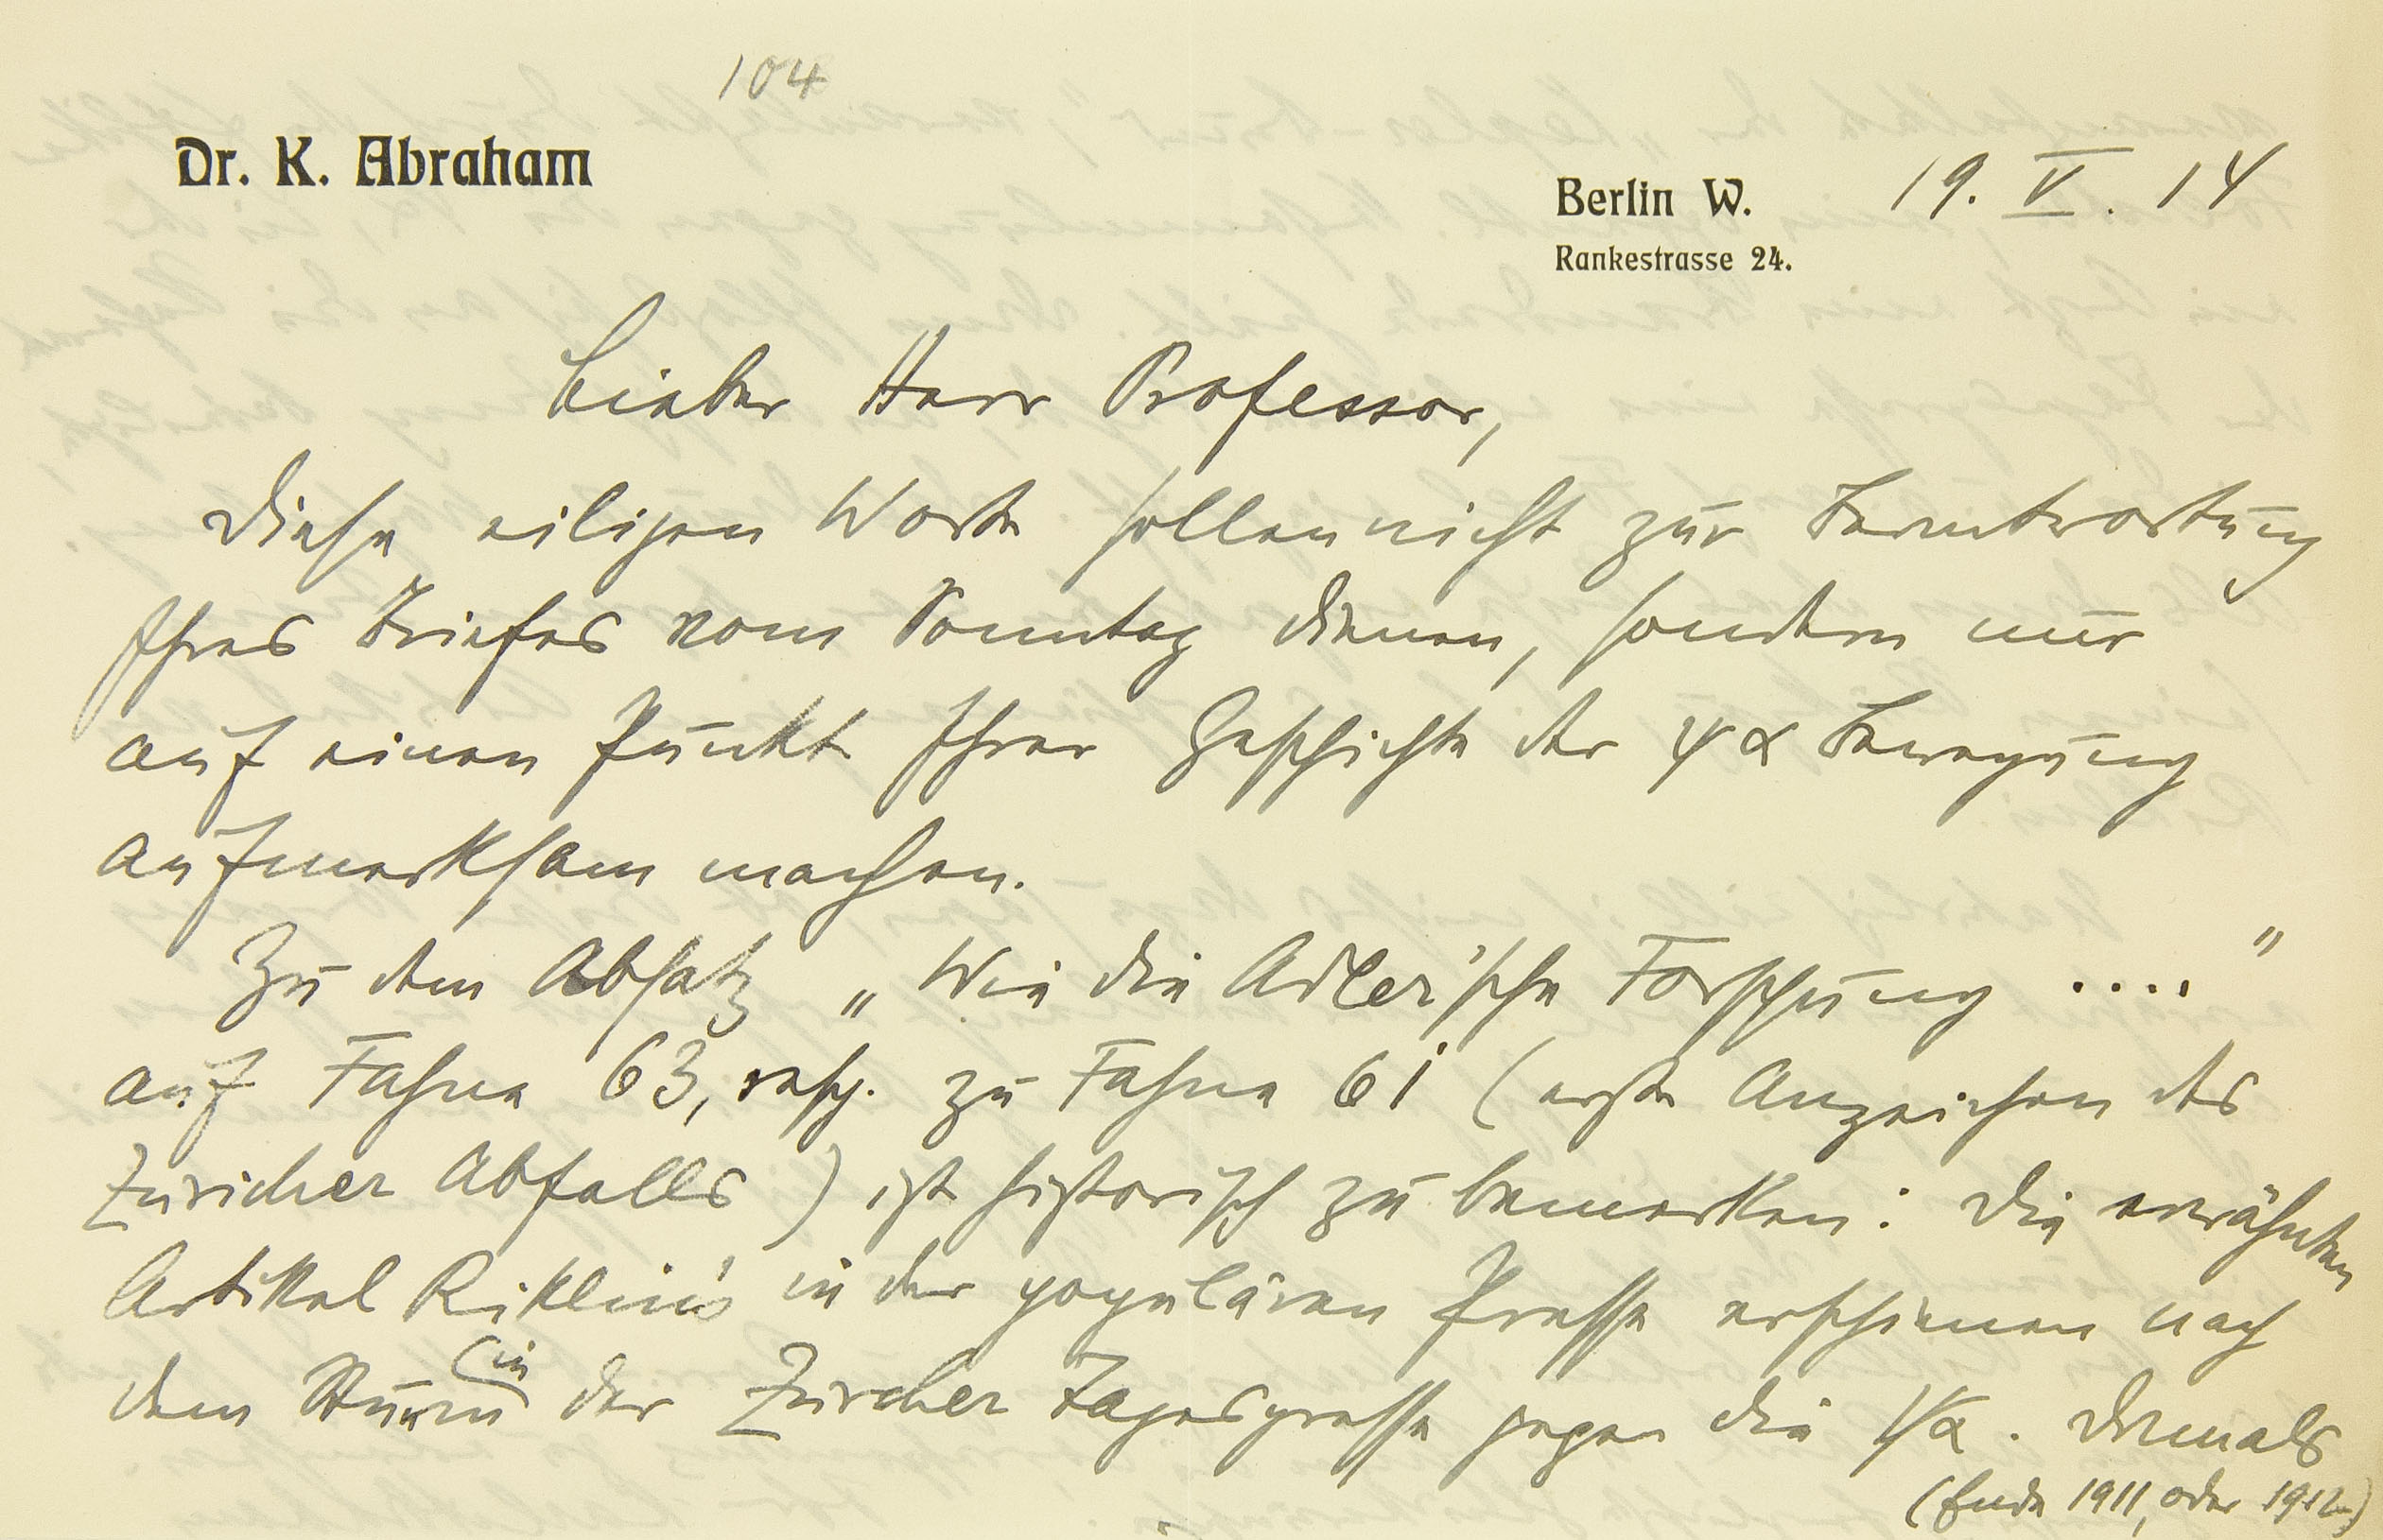 104
Dr. K. Abraham
Berlin W. 19. V. 14
Rankestrasse 24.
Lieber Herr Professor,
Diese eiligen Worte sollen nicht zur Beantwortung
Ihres Briefes vom Sonntag dienen, sondern nur
auf einen Punkt Ihrer Geschichte der ψα Bewegung
aufmerksam machen.
Zu dem Absatz „Wie die Adler'sche Forschung ...."
auf Fahne 63, resp. zu Fahne 61 (erste Anzeichen des
Züricher Abfalls) ist historisch zu bemerken: Die erwähnten
Artikel Riklin's in der populären Presse erschienen nach
dem Sturm in der Zürcher Tagespresse gegen die ψα. Damals
(Ende 1911, oder 1912)